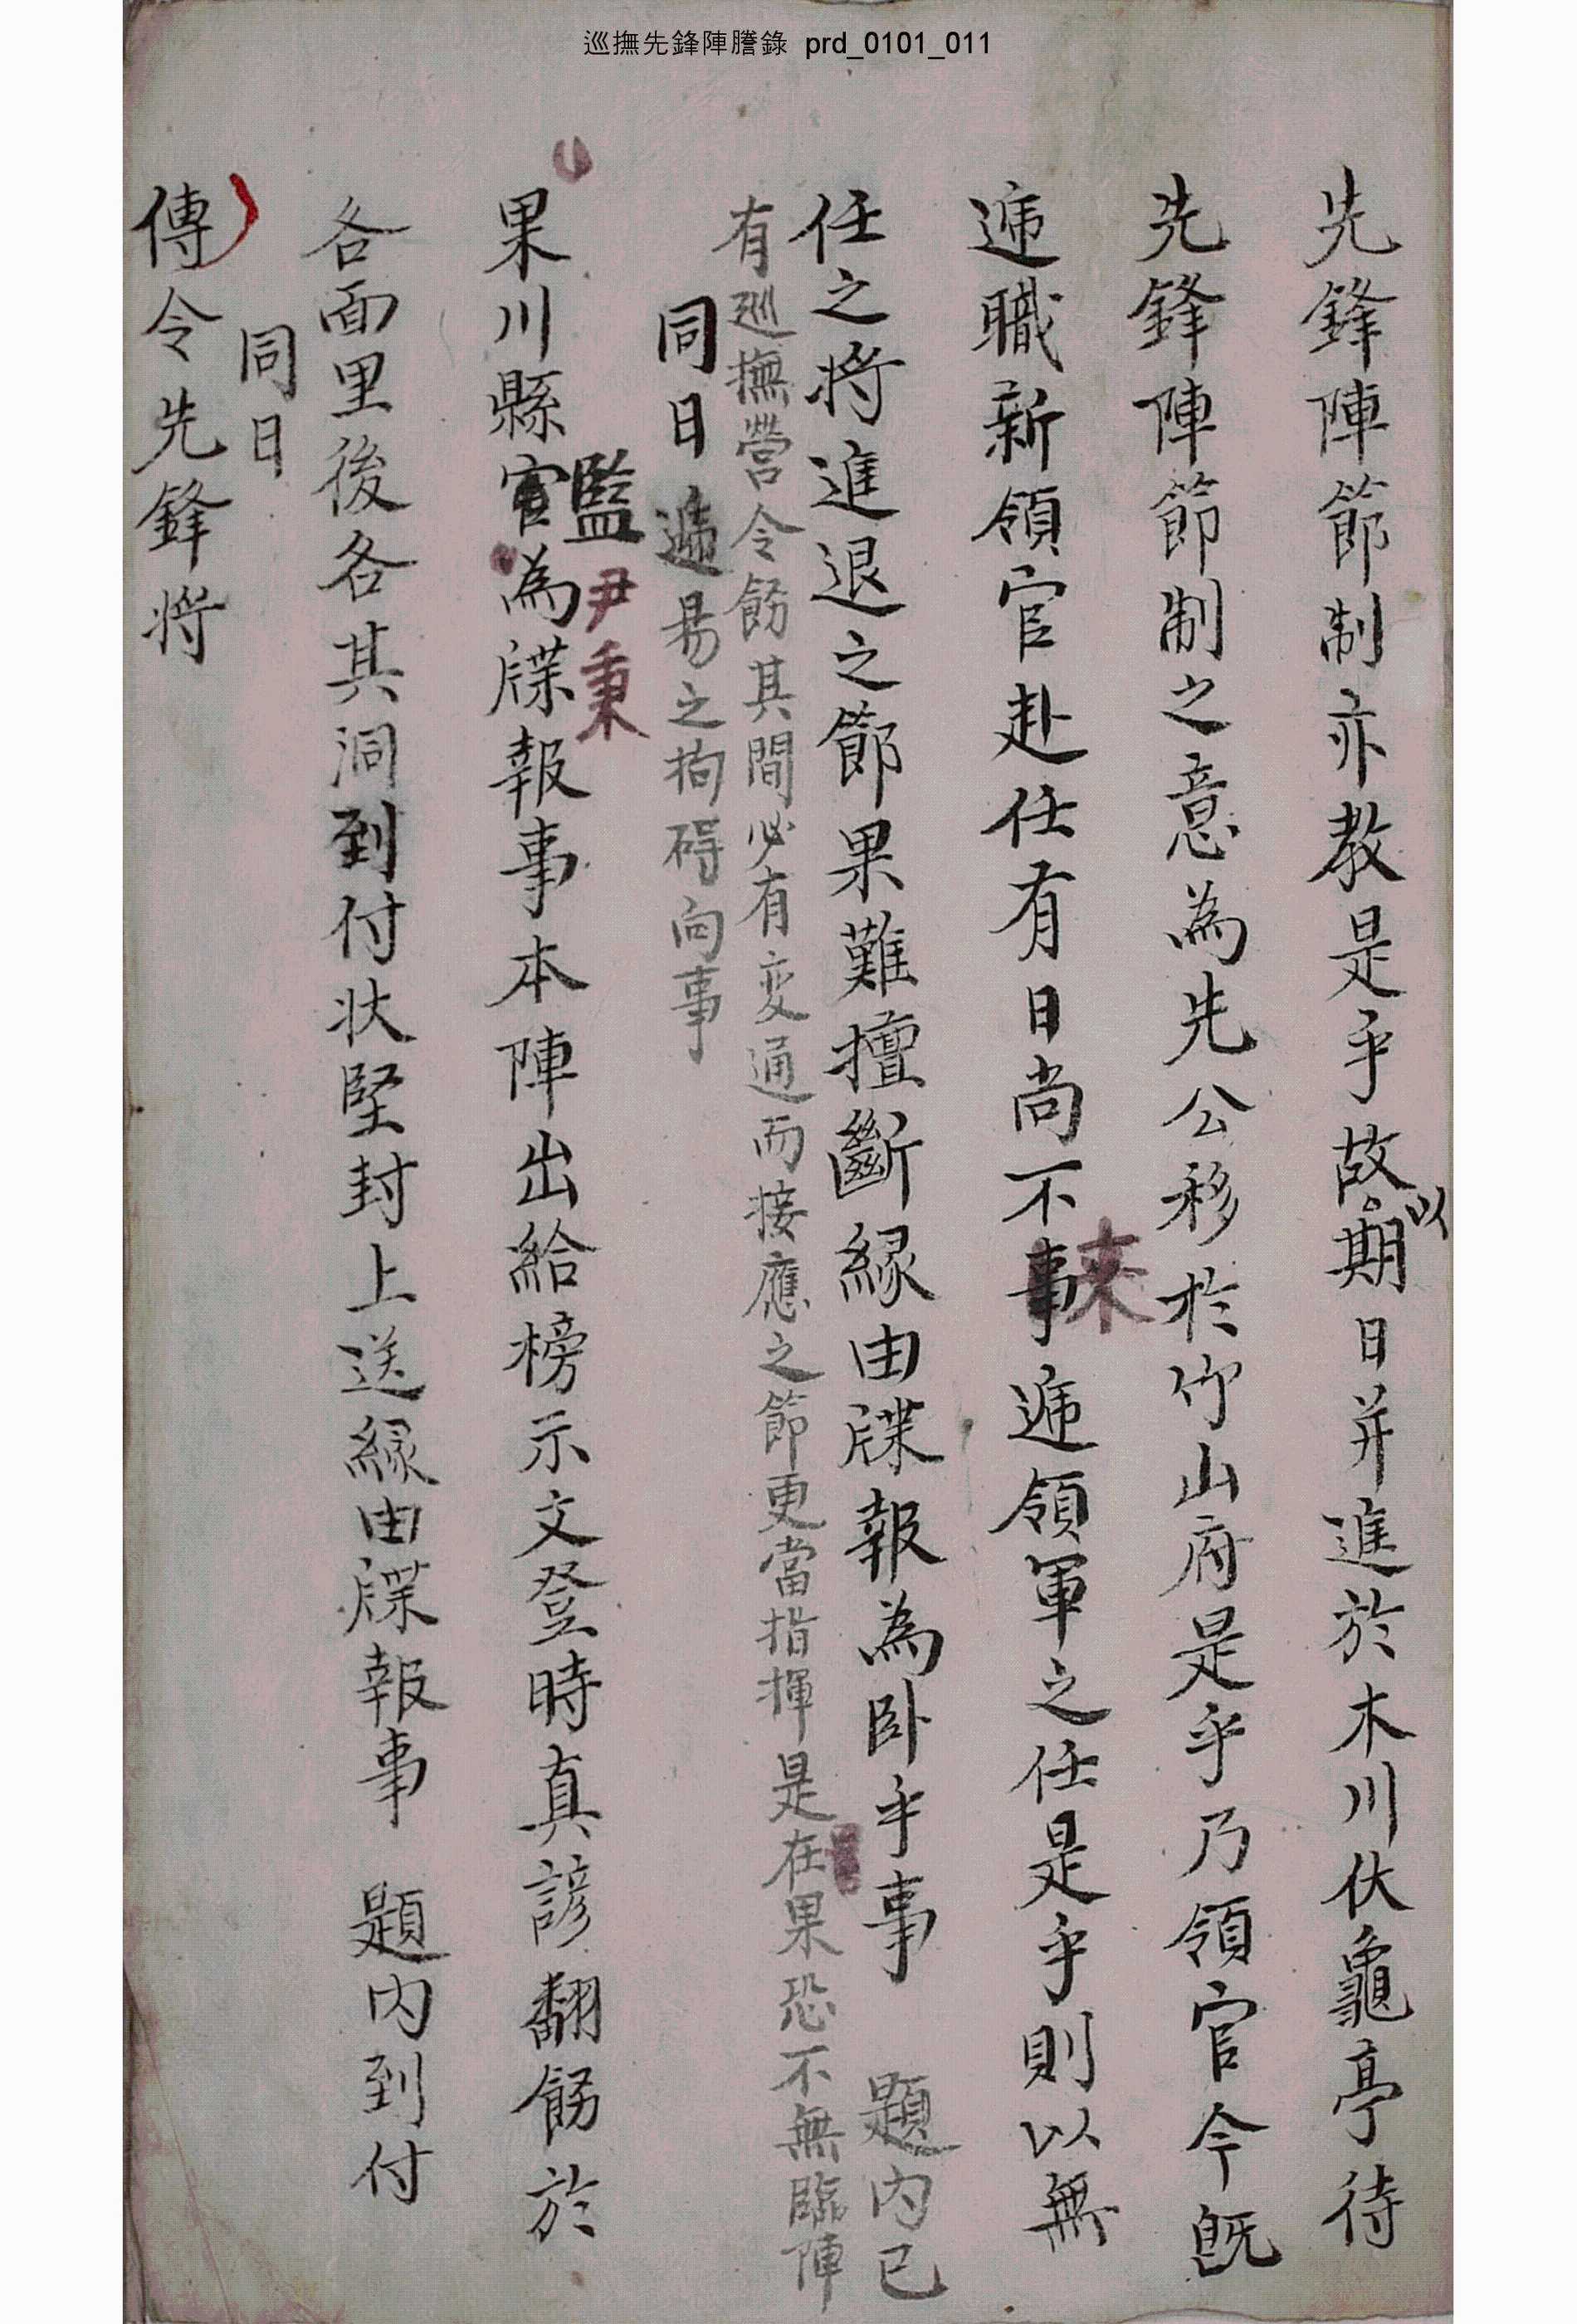 巡撫先鋒陣謄錄 prd_0101_011
先鋒陣節制亦敎是乎故以期日并進於木川伏龜亭待
先鋒陣節制之意為先公移於竹山府是乎乃領官今旣
遞職新領官赴任有日尚不來事遞領軍之任是乎則以無
任之將進退之節果難擅斷緣由牒報為卧乎事 題內已
有巡撫營令飭其間必有変通而接應之節更當指揮是在果恐不無臨陣
同日 遞易之拘碍向事
監 尹秉
果川縣官為牒報事本陣出給榜示文登時真諺翻飭於
各面里後各其洞到付狀堅封上送緣由牒報事 題內到付
同日
傳令先鋒將